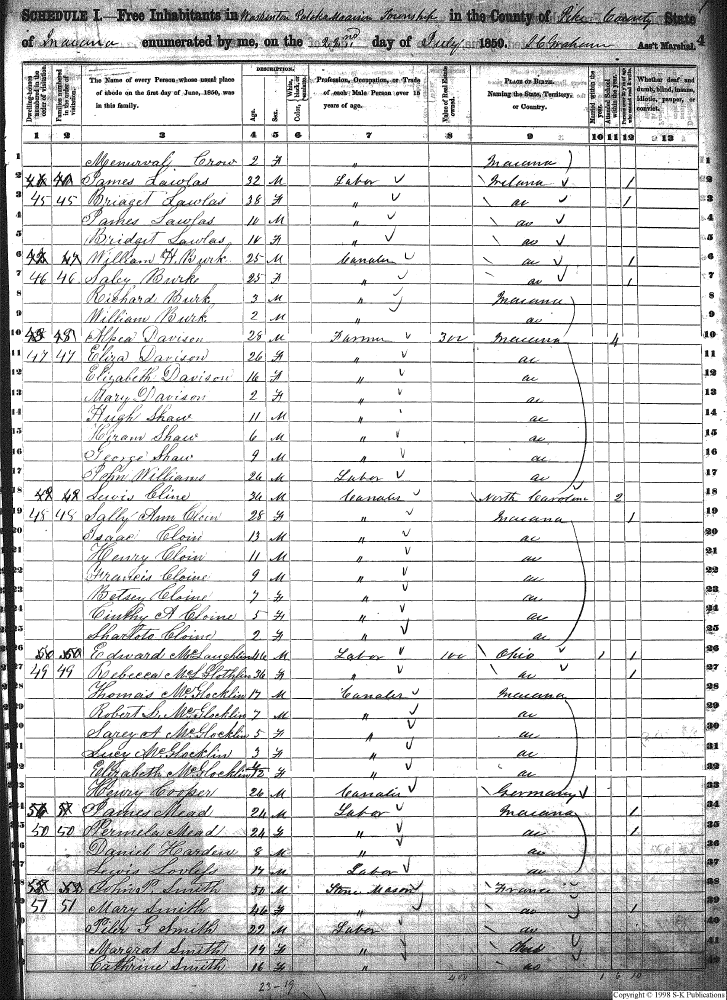 SCHEDULE I.—Free Inhabitants in Washington Township in the County of Pike County State
of Indiana enumerated by me, on the 22nd day of July 1850. Graham Ass't Marshal. 4
Dwelling-houses numbered in the order of visitation.
Families numbered in the order of visitation.
The Name of every Person whose usual place of abode on the first day of June, 1850, was in this family.
DESCRIPTION.
Age.
Sex.
Color, White, black, or mulatto.
Profession, Occupation, or Trade of each Male Person over 15 years of age.
Value of Real Estate owned.
PLACE OF BIRTH. Naming the State, Territory, or Country.
Married within the year.
Attended School within the year.
Whether deaf and dumb, blind, insane, idiotic, pauper, or convict.
1 2 3 4 5 6 7 8 9 10 11 12 13
1 Menurvah Crow 2 F " Indiana 1
2 James Lawlas 32 M Labor Ireland 1 2
3 45 45 Bridget Lawlas 38 F " do 1 3
4 James Lawlas 10 M " do 4
5 Bridget Lawlas 10 F " do 5
6 47 William H. Burk 25 M Canaler do 1 6
7 46 46 Saley Burk 25 F " do 1 7
8 Richard Burk 3 M " Indiana 8
9 William Burk 2 M do 9
10 48 Davison 28 M Farmer 300 Indiana 4 10
11 47 47 Eliza Davison 26 F " do 11
12 Elizabeth Davison 16 F " do 12
13 Mary Davison 2 F " do 13
14 Hugh Shaw 11 M " do 14
15 Hiram Shaw 6 M " do 15
16 George Shaw 9 M " do 16
17 John Williams 26 M Labor do 17
18 49 49 Lewis Cline 34 M Canaler North Caroline 2 18
19 48 48 Sally Ann Cloin 28 F " Indiana 1 19
20 Isaac Cloin 13 M " do 20
21 Henry Cloin 11 M " do 21
22 Francis Cloine 9 M " do 22
23 Betsey Cloine 7 F " do 23
24 Cinthy A Cloine 5 F " do 24
25 Sharloto Cloine 2 F " do 25
26 50 50 Edward McLaughlin 46 M Labor 100 Ohio 1 1 26
27 49 49 Rebecca McGlothlin 36 F " do 1 27
28 Thomas McGlocklin 17 M Canaler Indiana 28
29 Robert S. McGlocklin 7 M " do 29
30 Sarey A McGlocklin 5 F " do 30
31 Lucy McGlocklin 3 F " do 31
32 Elizabeth McGlocklin F " do 32
33 Henry Cooper 26 M Canaler Germany 33
34 51 51 James Mead 24 M Labor Indiana 1 34
35 50 50 Permela Mead 24 F " do 1 35
36 Daniel Harden 8 M " do 36
37 Lewis Lovless 17 M Labor do 37
38 52 52 John P. Smith 50 M Stone Mason France 38
39 51 51 Mary Smith 46 F " do 1 39
40 Peter G Smith 22 M Labor do 40
41 Margrat Smith 19 F " 41
42 Cathrine Smith 16 F " do 42
23-19 400 1 6 10
Copyright © 1998 S-K Publications